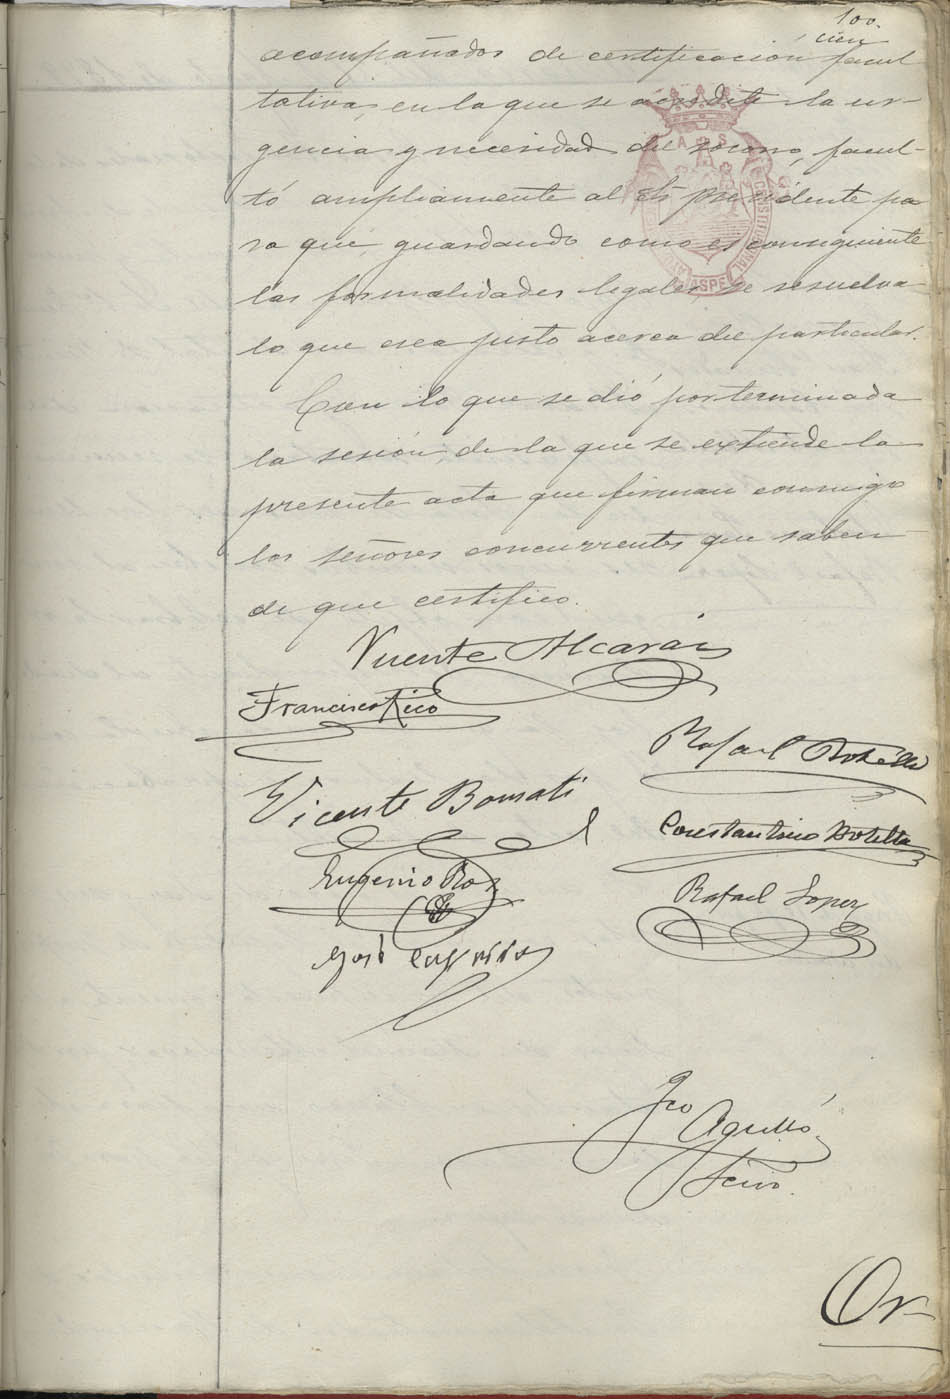 100.
cien
acompañados de certificación facul
tativa, en la que se acredite la ur-
gencia y necesidad del socorro, facul-
tó ampliamente al Sr. presidente pa
ra que, guardando como es consiguiente
las formalidades legales se resuelva
lo que crea justo acerca del particular.
Con lo que se dió por terminada
la sesión, de la que se extiende la
presente acta que firman conmigo
los señores concurrentes que saben
de que certifico.
Vicente Alcaraz
Francisco Rico
Rafael Botella
Vicente Bomati
Constantino Botella
Eugenio
Rafael Lopez
José
Fco Agulló
Srio.
Or-
A S
CONSTITUCIONAL
ASPE